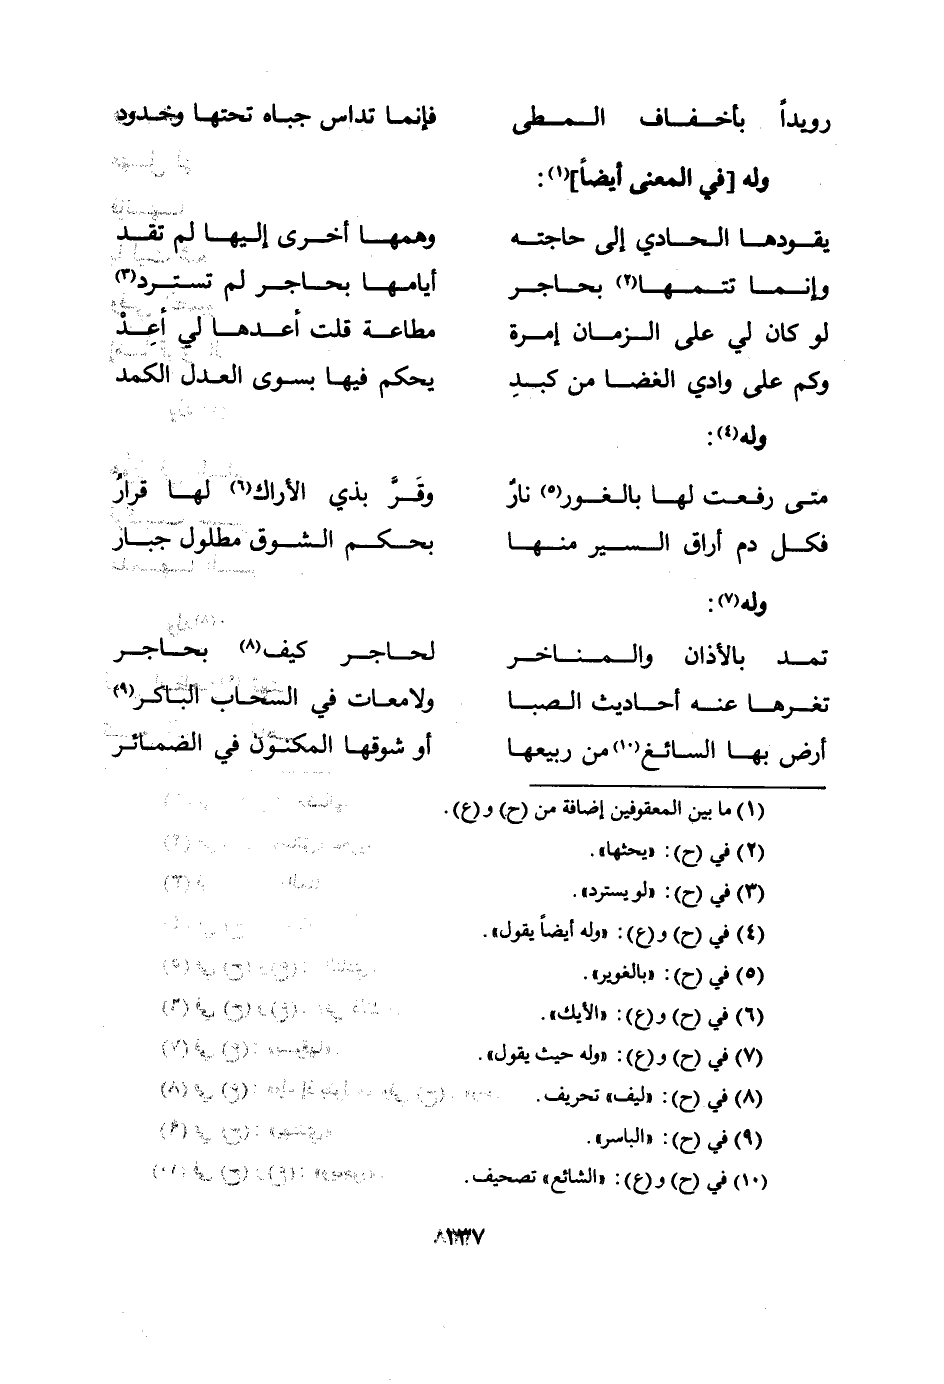 رويداً بأخفاف المطى فإنما تداس جباه تحتها وخدود
وله [في المعنى أيضاً](١):
يقودها الحادي إلى حاجته وهمها أخرى إليها لم تقد
وإنما تتمها(٢) بحاجر أيامها بحاجر لم تسترد(٣)
لو كان لي على الزمان إمرة مطاعة قلت أعدها لي أعِدْ
وكم على وادي الغضا من كبدِ يحكم فيها بسوى العدل الكمد
وله(٤):
متى رفعت لها بالغور(٥) نارٌ وقَرَّ بذي الأراك(٦) لها قرارٌ
فكل دم أراق السير منها بحكم الشوق مطلول جبار
وله(٧):
تمد بالأذان والمناخر لحاجر كيف(٨) بحاجر
تغرها عنه أحاديث الصبا ولامعات في السحاب الباكر(٩)
أرض بها السائغ(١٠) من ربيعها أو شوقها المكنون في الضمائر
(١) ما بين المعقوفين إضافة من (ح) و(ع).
(٢) في (ح): «يحثها».
(٣) في (ح): «لو يسترد».
(٤) في (ح) و(ع): «وله أيضاً يقول».
(٥) في (ح): «بالغوير».
(٦) في (ح) و(ع): «الأيك».
(٧) في (ح) و(ع): «وله حيث يقول».
(٨) في (ح): «ليف» تحريف.
(٩) في (ح): «الباسر».
(١٠) في (ح) و(ع): «الشائع» تصحيف.